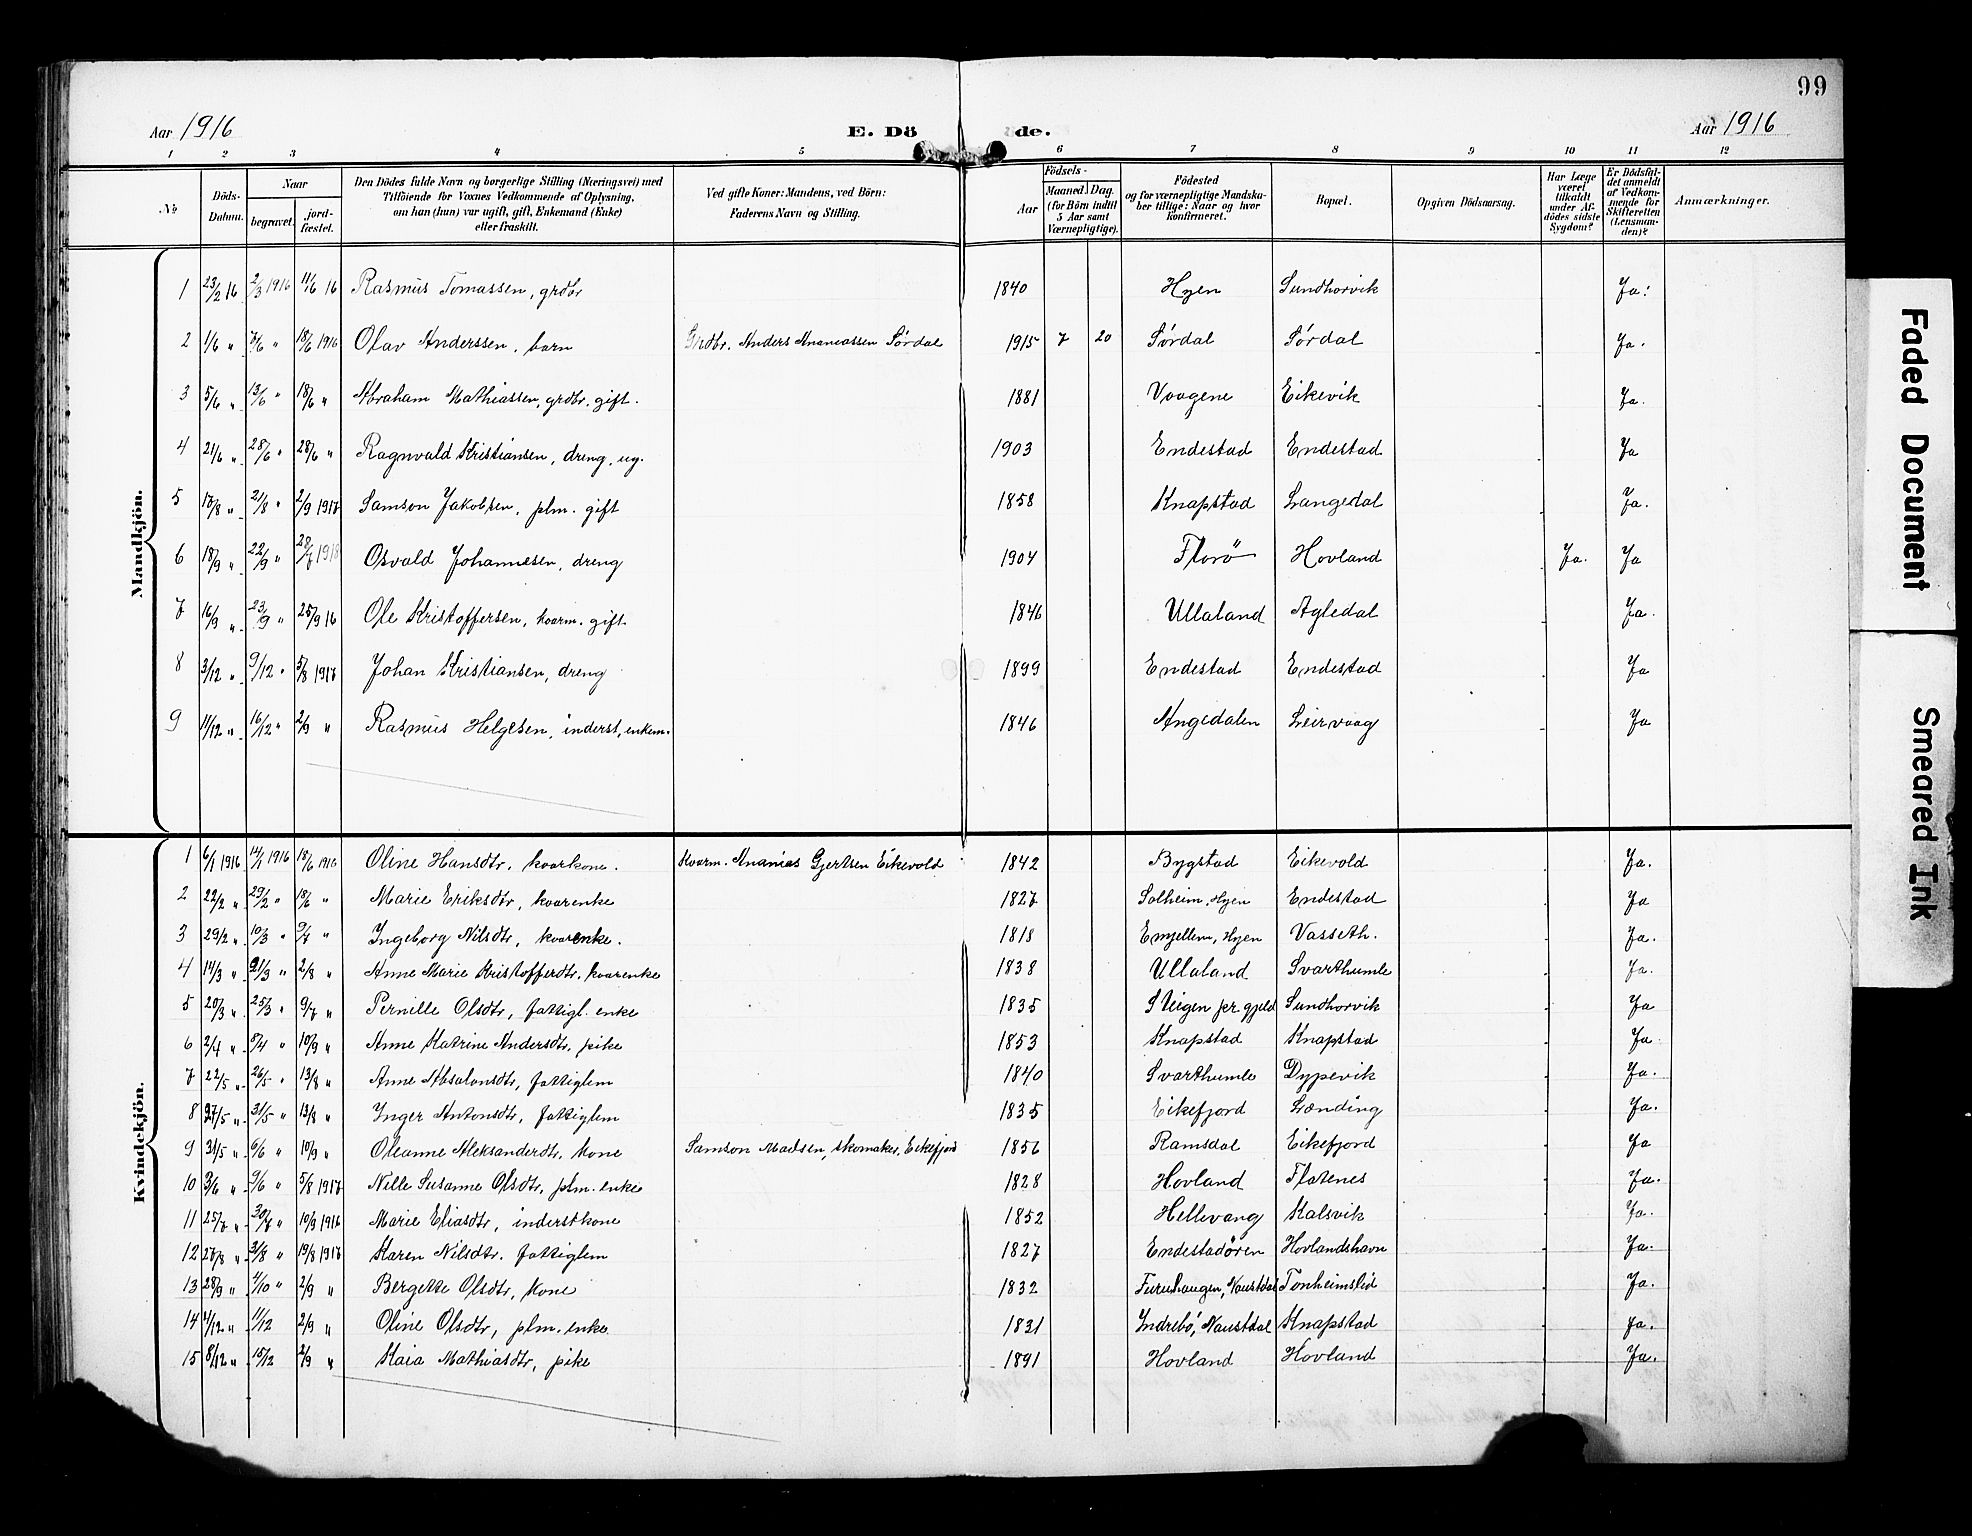 99
Aar 1916 E. Dö de. Aar 1916
1 2 3 4 5 6 7 8 9 10 11 12
No
Döds-Datum.
Naar
begravet.
jord-fæstet.
Den Dödes fulde Navn og borgerlige Stilling (Næringsvei) med
Tilföiende for Voxnes Vedkommende af Oplysning,
om han (hun) var ugift, gift, Enkemand (Enke)
eller fraskilt.
Ved gifte Koner: Mandens, ved Börn:
Faderens Navn og Stilling.
Födsels-
Aar
Maaned. Dag.
(for Börn indtil
5 Aar samt
Værnepligtige).
Födested
og for værnepligtige Mandska-
ber tillige: Naar og hvor
konfirmeret.
Bopæl.
Opgiven Dödsaarsag.
Har Læge
været
tilkaldt
under Af-
dödes sidste
Sygdom?
Er Dödsfal-
det anmeldt
af Vedkom-
mende for
Skifteretten
(Lensman-
den)?
Anmærkninger.
Mandkjön.
1 23/2 16 2/3 1916 11/6 16 Rasmus Tomassen, grdbr 1840 Hyen Sundhorvik Ja.
2 1/6 " 7/6 " 18/6 1916 Olav Anderssen, barn Grdbr. Anders Ananiassen Sørdal 1915 7 20 Sørdal Sørdal Ja.
3 5/6 " 13/6 " 18/6 " Abraham Mathiassen, grdbr. gift. 1881 Vaagene Eikevik Ja.
4 21/6 " 28/6 " 28/6 " Ragnvald Kristiansen, dreng, ug. 1903 Endestad Endestad Ja
5 17/8 " 21/8 " 2/9 1917 Samson Jakobsen, plm. gift 1858 Knapstad Langedal Ja.
6 18/9 " 22/9 " 28/7 1918 Osvald Johannesen, dreng 1904 Florö Hovland Ja. Ja
7 16/9 " 23/9 " 25/9 16 Ole Kristoffersen, kaarm. gift 1846 Ullaland Agledal Ja.
8 3/12 " 9/12 " 5/8 1917 Johan Kristiansen, dreng 1899 Endestad Endestad Ja
9 11/12 " 16/12 " 2/9 " Rasmus Helgesen, inderst, enkem. 1846 Angedalen Leirvaag Ja
Kvindekjön.
1 6/1 1916 14/1 1916 18/6 1916 Oline Hansdtr, kaarkone. Kaarm. Ananias Gjertsen Eikevold 1842 Bygstad Eikevold Ja.
2 22/2 " 29/2 " 18/6 " Marie Eriksdtr, kaarenke 1827 Solheim, Hyen Endestad Ja
3 29/2 " 10/3 " 9/7 " Ingeborg Nilsdtr, kaarenke. 1818 Emjellem, Hyen Vasseth. Ja.
4 14/3 " 21/3 " 2/8 " Anne Marie Kristofferdtr. kaarenke 1838 Ullaland Svarthumle Ja.
5 20/3 " 25/3 " 9/7 " Pernille Olsdtr, fattigl. enke 1835 Steigen pr. gjeld Sundhorvik Ja
6 2/4 " 8/4 " 10/9 " Anne Katrine Andersdtr. pike 1853 Knapstad Knapstad Ja
7 22/5 " 26/5 " 13/8 " Anne Absalonsdtr, fattiglem 1840 Svarthumle Dypevik Ja.
8 27/5 " 31/5 " 13/8 " Inger Antonsdtr, fattiglem 1835 Eikefjord Lænding Ja.
9 31/5 " 6/6 " 10/9 " Oleanne Aleksanderdtr. kone Samson Madsen, skomaker, Eikefjord 1856 Ramsdal Eikefjord Ja
10 3/6 " 9/6 " 5/8 1917 Nille Susanne Olsdtr, plm. enke 1828 Hovland Flatenes Ja.
11 25/7 " 30/7 " 10/9 1916 Marie Eliasdtr, inderstkone 1852 Hellevang Kalsvik Ja.
12 27/8 " 31/8 " 19/8 1917 Karen Nilsdtr. fattiglem 1827 Endestadören Hovlandshavn Ja.
13 28/9 " 4/10 " 2/9 " Bergette Olsdtr, kone 1832 Furuhaugen, Naustdal Tonheimslid Ja.
14 4/12 " 11/12 2/9 " Oline Olsdtr, plm. enke 1831 Indrebö, Naustdal Knapstad Ja.
15 8/12 " 15/12 2/9 " Kaia Mathiasdtr, pike 1891 Hovland Hovland Ja.
Faded Document
Smeared Ink